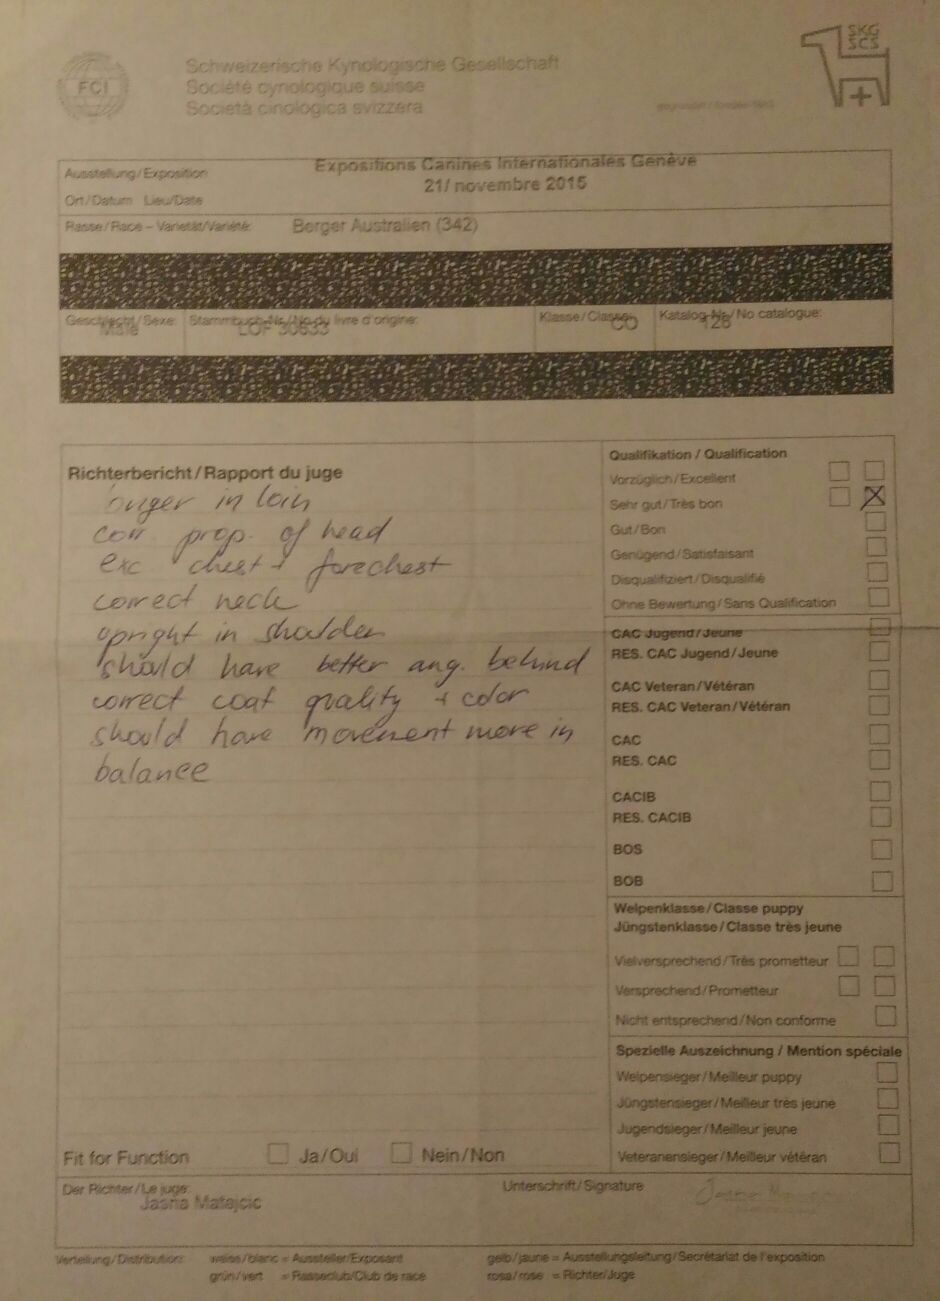 FCI
Schweizerische Kynologische Gesellschaft
Société cynologique suisse
Società cinologica svizzera
SKG
SCS
Ausstellung/Exposition
Expositions Canines Internationales Genève
21/ novembre 2015
Ort/Datum Lieu/Date
Rasse/Race – Varietät/Variété: Berger Australien (342)
Geschlecht/Sexe: Stammbuch-Nr./No du livre d'origine: Klasse/Classe: Katalog-Nr./No catalogue:
Male LOF 30633 CO 128
Richterbericht/Rapport du juge
longer in loin
corr. prop. of head
exc chest + forechest
correct neck
upright in shoulder
should have better ang. behind
correct coat quality + color
should have movement more in
balance
Qualifikation / Qualification
Vorzüglich/Excellent
Sehr gut/Très bon
Gut/Bon
Genügend/Satisfaisant
Disqualifiziert/Disqualifié
Ohne Bewertung/Sans Qualification
CAC Jugend/Jeune
RES. CAC Jugend/Jeune
CAC Veteran/Vétéran
RES. CAC Veteran/Vétéran
CAC
RES. CAC
CACIB
RES. CACIB
BOS
BOB
Welpenklasse/Classe puppy
Jüngstenklasse/Classe très jeune
Vielversprechend/Très prometteur
Versprechend/Prometteur
Nicht entsprechend/Non conforme
Spezielle Auszeichnung / Mention spéciale
Welpensieger/Meilleur puppy
Jüngstensieger/Meilleur très jeune
Jugendsieger/Meilleur jeune
Veteranensieger/Meilleur vétéran
Fit for Function Ja/Oui Nein/Non
Der Richter/Le juge: Unterschrift/Signature
Jasna Matejcic
Verteilung/Distribution: weiss/blanc = Aussteller/Exposant gelb/jaune = Ausstellungsleitung/Secrétariat de l'exposition
grün/vert = Rasseclub/Club de race rosa/rose = Richter/Juge